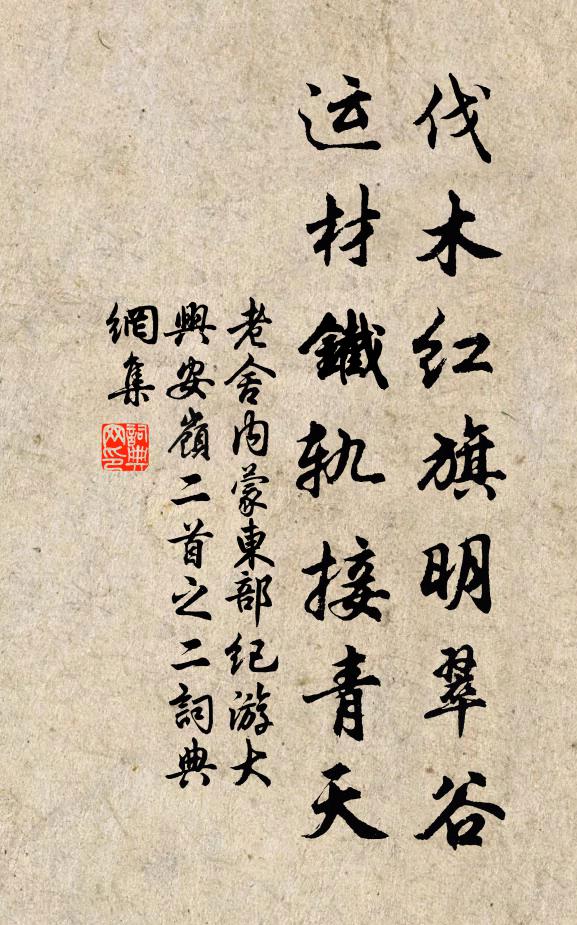 伐木红旗明翠谷
运材鐵軌接青天
老舍内蒙東部纪游大
興安嶺二首之二詞典
網集
詞典
网印